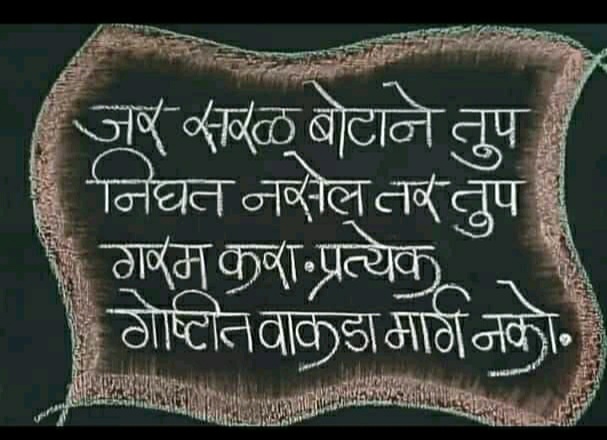 जर सरळ बोटाने तुप
निघत नसेल तर तुप
गरम करा.प्रत्येक
गोष्टीत वाकडा मार्ग नको.